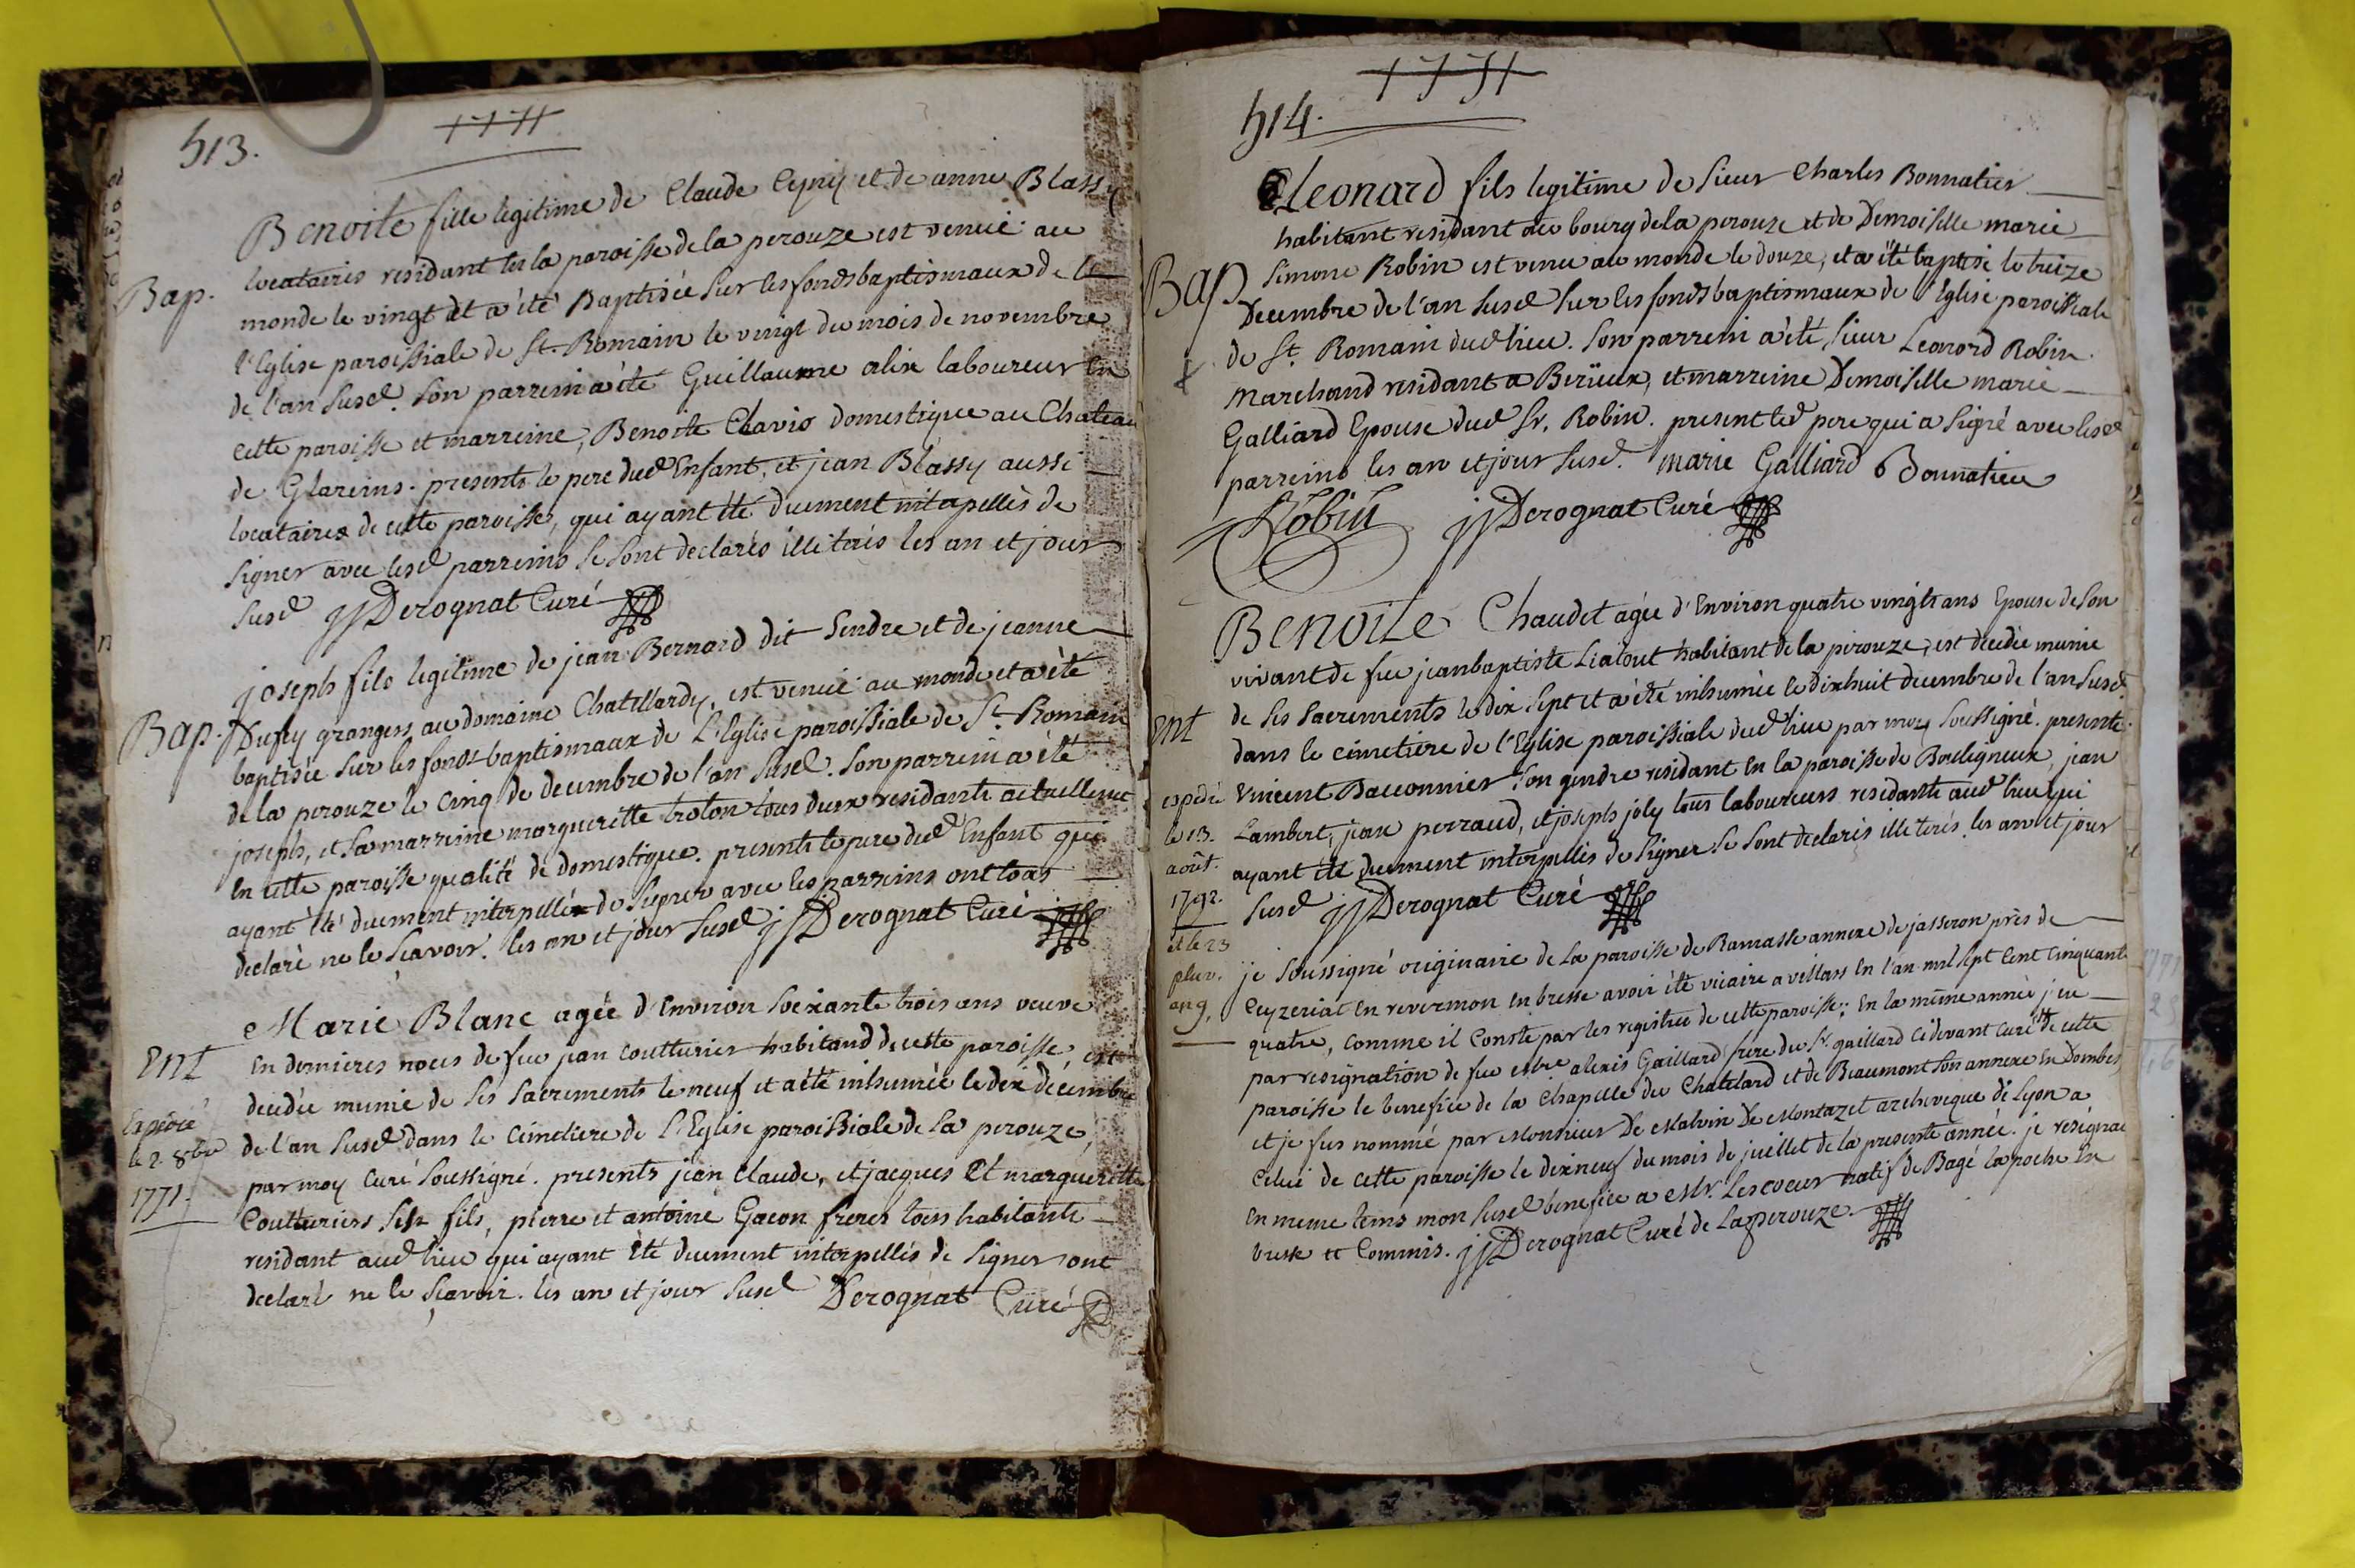 513.
1771
Benoite fille legitime de Claude et de anne Blassy
Bap.
locataires residant les la paroisse de la perouze est venue au
monde le vingt et a été Baptisée sur les fonds baptismaux de
l'Eglise paroissiale de St. Romain le vingt du mois de novembre
de l'an susd. Son parrein a été Guillaume alix laboureur En
cette paroisse et marreine, Benoite Clavis domestique au Chateau
de Glareins. presents le pere dud Enfant, et jean Blassy aussi
locataires de cette paroisse, qui ayant été duement intapellés de
signer avec lesd parreins se sont declarés illiterés les an et jour
susd jjDerognat Curé
joseph fils legitime de jean Bernard dit Sendre et de jeanne
Bap.
Dufey grangers au domaine Chatillardy, est venue au monde et a été
baptisée sur les fonds baptismaux de L'Eglise paroissiale de St. Romain
de la perouze le cinq de decembre de l'an susd. Son parrein a été
joseph, et sa marreine marguerette troton tous deux residants actuellemt
en cette paroisse qualité de domestique. presents le pere dud Enfant qui
ayant été duement interpellés de signer avec les parreins ont tous
declaré ne le sçavoir. les an et jour susd jjDerognat Curé
Marie Blanc agée d'Environ soixante trois ans veuve
Ent
En dernieres noces de feu jean coutturier habitand de cette paroisse, est
decedée munie de ses sacrements le neuf et a été inhumée le dix décembre
Expedié
de l'an susd dans le Cimetiere de L'Eglise paroissiale de la perouze,
le 2. 8bre
par moy Curé soussigné. presents jean Claude, et jacques et marguerette
1771.
Coutturiers ses fils, pierre et antoine Gacon freres tous habitants
residant aud lieu qui ayant été duement interpellés de signer ont
declaré ne le sçavoir. les an et jour susd Derognat Curé
514.
1771
Leonard fils legitime de sieur Charles Bonnatier
habitant residant au bourg de la perouze et de Demoiselle marie
Bap
Simone Robin est venu au monde le douze, et a été baptisé le treize
Decembre de l'an susd sur les fonds baptismaux de l'Eglise paroissiale
de St. Romain dud lieu. Son parrein a été, sieur Leonard Robin
marchand residant a , et marreine Demoiselle marie
Galliard Epouse dud Sr. Robin. present led pere qui a signé avec lesd
parreins les an et jour susd. marie Galliard Bonnatier
Robin jjDerognat Curé
Benoite Chaudet agée d'Environ quatre vingt ans Epouse de son
vivant de feu jean baptiste Liatout habitant de la perouze, est decedée munie
Ent
de ses sacrements le dix sept et a été inhumée le dixhuit decembre de l'an susd
dans le cimetiere de l'Eglise paroissiale dud lieu par moy soussigné. presents
expedié
vincent Baconnier son gendre residant En la paroisse de Bouligneux, jean
le 13.
Lambert, jean perraud, et joseph joly tous laboureurs residants aud lieu qui
août.
ayant été duement interpellés de signer se sont declarés illiterés. les an et jour
1792.
susd jjDerognat Curé
et le 23
pluv.
an 9.
je soussigné originaire de la paroisse de Ramasse annexe de jasseron près de
Ceyzeriat en revermon en bresse avoir été vicaire a villars En l'an mil sept cent cinquante
quatre, comme il conste par les registres de cette paroisse; En la même année j'eu
par resignation de feu alexis Gaillard frere du Sr. gaillard cidevant curé de cette
paroisse le benefice de la Chapelle du Chatelard et de Beaumont son annexe En Dombes
et je fus nommé par Monsieur De Malvin De Montazet archeveque de Lyon a
celui de cette paroisse le dixneuf du mois de juillet de la presente année. je resignai
En meme tems mon susd benefice a Mr. Lescoeur natif de Bagé la poche En
bresse et Commis. jjDerognat Curé de Laperouze.